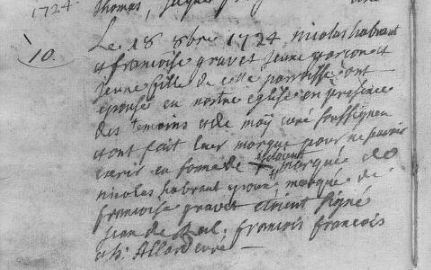 1724
10.
Le 18 8bre 1724 nicolas habrant
et francoise gravet jeune garcon et
jeune fille de cette parroisse ont
epousé en nostre eglise en presence
des temoins et de moÿ curé soussigneu
et ont fait leur marque pour ne pouvoir
ecrire en forme de
nicolas habrant epoux marque de
francoise gravet etoient signé
jean de francois francois
et h. Allard curé